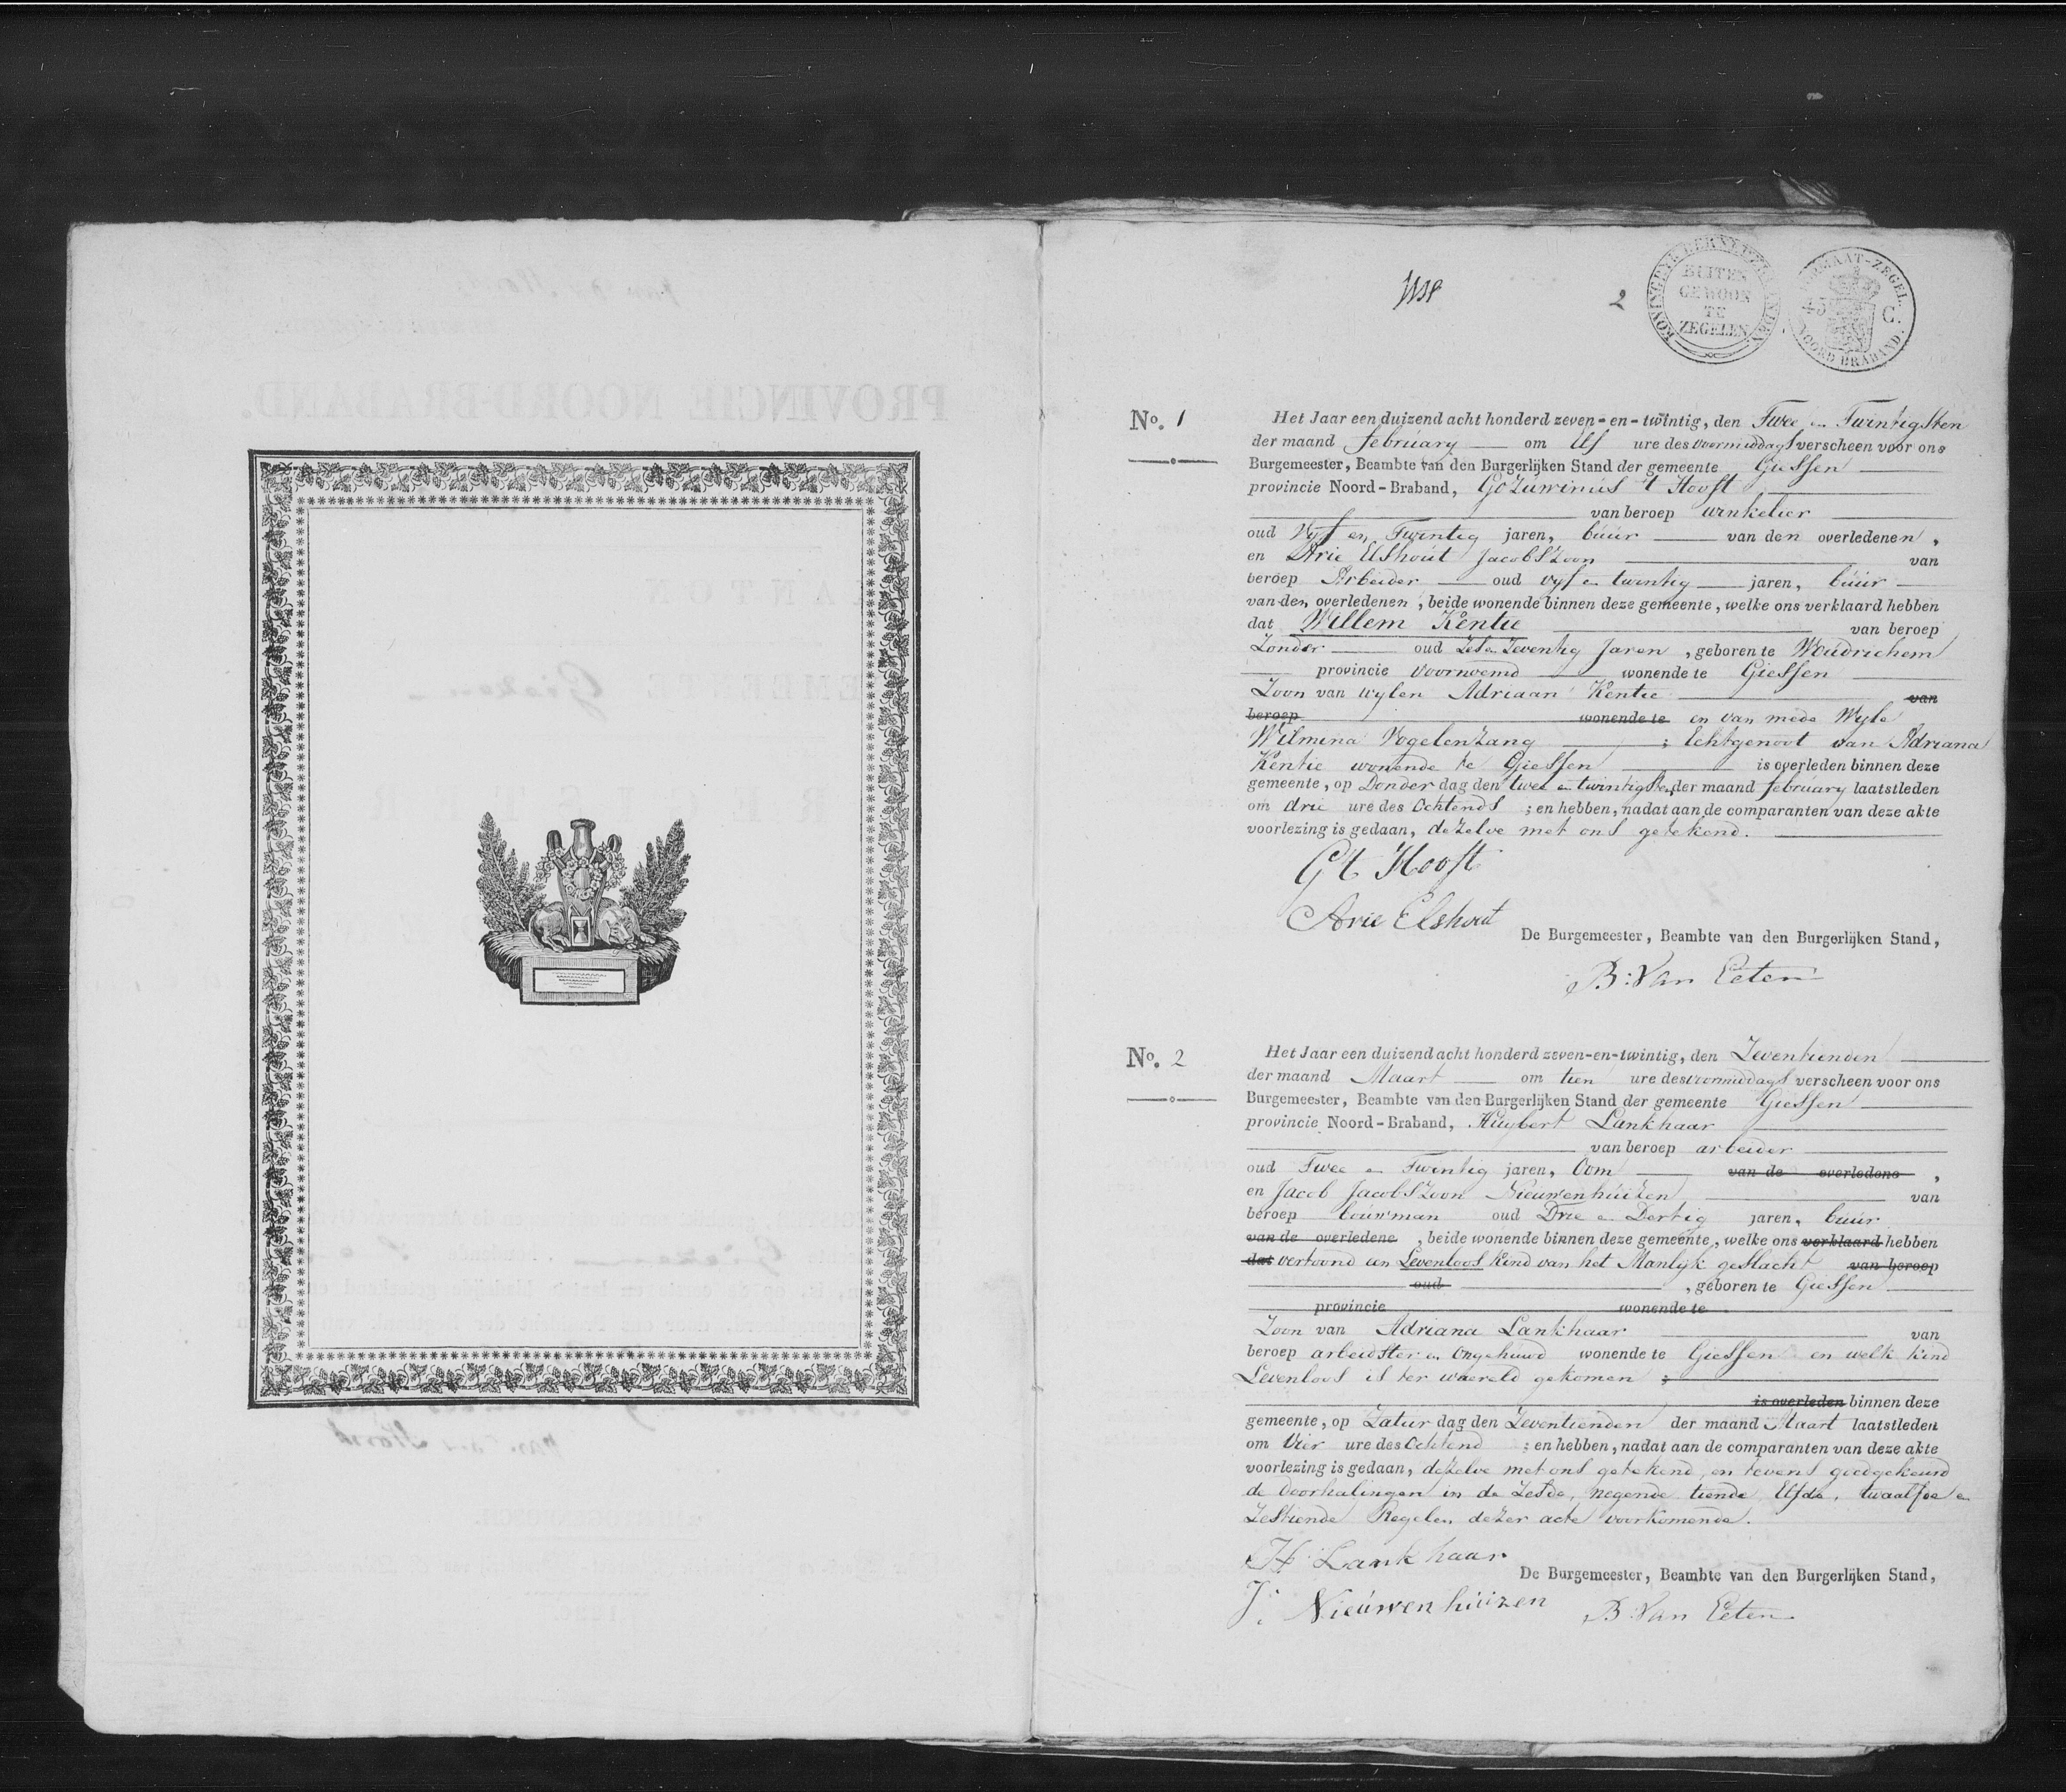 2
KONINGRYK DER NEDERLANDEN
BUITEN
GEWOON
TE
ZEGELEN
FORMAAT-ZEGEL
45 C.
NOORD BRABAND
No. 1
Het Jaar een duizend acht honderd zeven-en-twintig, den Twee en Twintigsten
der maand february om Elf ure des voormiddags verscheen voor ons
Burgemeester, Beambte van den Burgerlijken Stand der gemeente Giessen
provincie Noord-Braband, Gozuwinus 't Hooft
van beroep winkelier
oud Vyf en Twintig jaren, buur van den overledenen,
en Arie Elshout Jacobszoon van
beroep Arbeider oud vyf en twintig jaren, buur
van den overledenen, beide wonende binnen deze gemeente, welke ons verklaard hebben
dat Willem Kentie van beroep
Zonder oud Zes en Zeventig Jaren, geboren te Woudrichem
provincie voornoemd wonende te Giessen
Zoon van wylen Adriaan Kentie van
beroep wonende te en van mede Wyle
Wilmina Vogelenzang ; Echtgenoot van Adriana
Kentie wonende te Giessen is overleden binnen deze
gemeente, op Donderdag den twee en twintigsten der maand february laatstleden
om drie ure des ochtends ; en hebben, nadat aan de comparanten van deze akte
voorlezing is gedaan, dezelve met ons getekend.
G't Hooft
Arie Elshout
De Burgemeester, Beambte van den Burgerlijken Stand,
B: Van Eeten
No. 2
Het Jaar een duizend acht honderd zeven-en-twintig, den Zeventienden
der maand Maart om tien ure des voormiddags verscheen voor ons
Burgemeester, Beambte van den Burgerlijken Stand der gemeente Giessen
provincie Noord-Braband, Huybert Lankhaar
van beroep arbeider
oud Twee en Twintig jaren, Oom van de overledene,
en Jacob Jacobszoon Nieuwenhuizen van
beroep bouwman oud Drie en Dertig jaren, buur
van de overledene, beide wonende binnen deze gemeente, welke ons verklaard hebben
dat vertoond een Levenloos Kind van het Manlyk geslacht van beroep
oud , geboren te Giessen
provincie wonende te
Zoon van Adriana Lankhaar van
beroep arbeidster en Ongehuwd wonende te Giessen en welk kind
Levenloos is ter waereld gekomen ;
is overleden binnen deze
gemeente, op Zaturdag den Zeventienden der maand Maart laatstleden
om Vier ure des Ochtend ; en hebben, nadat aan de comparanten van deze akte
voorlezing is gedaan, dezelve met ons getekend, en tevens goedgekeurd
de doorhalingen in de Zesde, negende tiende Elfde, twaalfde en
Zestiende Regelen dezer acte voorkomende.
H Lankhaar
De Burgemeester, Beambte van den Burgerlijken Stand,
J: Nieuwenhuizen
B: Van Eeten